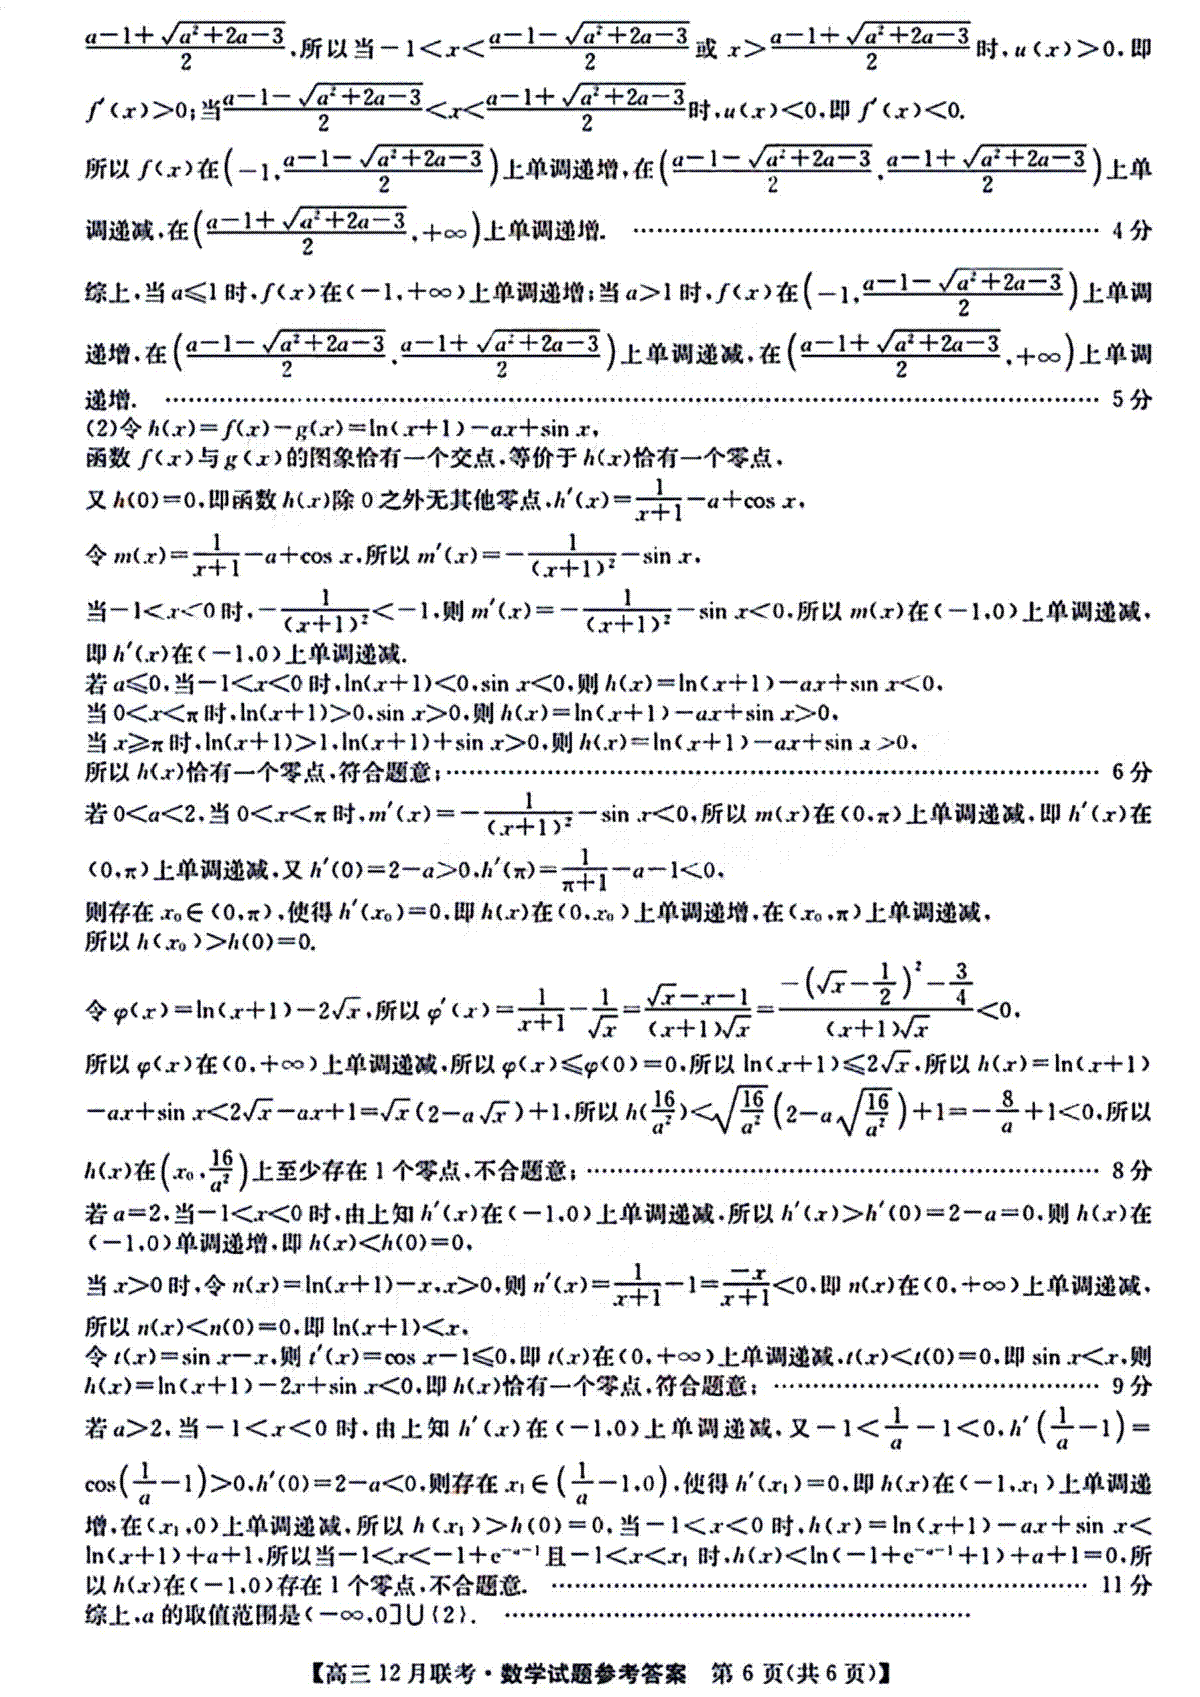 $\frac{a-1+\sqrt{a^2+2a-3}}{2}$,所以当$-1<x<\frac{a-1-\sqrt{a^2+2a-3}}{2}$或 $x>\frac{a-1+\sqrt{a^2+2a-3}}{2}$时,$u(x)>0$,即
$f'(x)>0$;当$\frac{a-1-\sqrt{a^2+2a-3}}{2}<x<\frac{a-1+\sqrt{a^2+2a-3}}{2}$时,$u(x)<0$,即 $f'(x)<0$.
所以 $f(x)$在$\left(-1,\frac{a-1-\sqrt{a^2+2a-3}}{2}\right)$上单调递增,在$\left(\frac{a-1-\sqrt{a^2+2a-3}}{2},\frac{a-1+\sqrt{a^2+2a-3}}{2}\right)$上单
调递减,在$\left(\frac{a-1+\sqrt{a^2+2a-3}}{2},+\infty\right)$上单调递增. …… 4 分
综上,当 $a\leqslant1$ 时,$f(x)$在$(-1,+\infty)$上单调递增;当 $a>1$ 时,$f(x)$在$\left(-1,\frac{a-1-\sqrt{a^2+2a-3}}{2}\right)$上单调
递增,在$\left(\frac{a-1-\sqrt{a^2+2a-3}}{2},\frac{a-1+\sqrt{a^2+2a-3}}{2}\right)$上单调递减,在$\left(\frac{a-1+\sqrt{a^2+2a-3}}{2},+\infty\right)$上单调
递增. …… 5 分
(2)令 $h(x)=f(x)-g(x)=\ln(x+1)-ax+\sin x$,
函数 $f(x)$与 $g(x)$的图象恰有一个交点,等价于 $h(x)$恰有一个零点,
又 $h(0)=0$,即函数 $h(x)$除 0 之外无其他零点,$h'(x)=\frac{1}{x+1}-a+\cos x$,
令 $m(x)=\frac{1}{x+1}-a+\cos x$,所以 $m'(x)=-\frac{1}{(x+1)^2}-\sin x$,
当$-1<x<0$ 时,$-\frac{1}{(x+1)^2}<-1$,则 $m'(x)=-\frac{1}{(x+1)^2}-\sin x<0$,所以 $m(x)$在$(-1,0)$上单调递减,
即 $h'(x)$在$(-1,0)$上单调递减.
若 $a\leqslant0$,当$-1<x<0$ 时,$\ln(x+1)<0,\sin x<0$,则 $h(x)=\ln(x+1)-ax+\sin x<0$,
当 $0<x<\pi$ 时,$\ln(x+1)>0,\sin x>0$,则 $h(x)=\ln(x+1)-ax+\sin x>0$,
当 $x\geqslant\pi$ 时,$\ln(x+1)>1,\ln(x+1)+\sin x>0$,则 $h(x)=\ln(x+1)-ax+\sin x>0$,
所以 $h(x)$恰有一个零点,符合题意; …… 6 分
若 $0<a<2$,当 $0<x<\pi$ 时,$m'(x)=-\frac{1}{(x+1)^2}-\sin x<0$,所以 $m(x)$在$(0,\pi)$上单调递减,即 $h'(x)$在
$(0,\pi)$上单调递减,又 $h'(0)=2-a>0,h'(\pi)=\frac{1}{\pi+1}-a-1<0$,
则存在 $x_0\in(0,\pi)$,使得 $h'(x_0)=0$,即 $h(x)$在$(0,x_0)$上单调递增,在$(x_0,\pi)$上单调递减,
所以 $h(x_0)>h(0)=0$.
令 $\varphi(x)=\ln(x+1)-2\sqrt{x}$,所以 $\varphi'(x)=\frac{1}{x+1}-\frac{1}{\sqrt{x}}=\frac{\sqrt{x}-x-1}{(x+1)\sqrt{x}}=\frac{-\left(\sqrt{x}-\frac{1}{2}\right)^2-\frac{3}{4}}{(x+1)\sqrt{x}}<0$,
所以 $\varphi(x)$在$(0,+\infty)$上单调递减,所以 $\varphi(x)\leqslant\varphi(0)=0$,所以 $\ln(x+1)\leqslant2\sqrt{x}$,所以 $h(x)=\ln(x+1)$
$-ax+\sin x<2\sqrt{x}-ax+1=\sqrt{x}(2-a\sqrt{x})+1$,所以 $h(\frac{16}{a^2})<\sqrt{\frac{16}{a^2}}\left(2-a\sqrt{\frac{16}{a^2}}\right)+1=-\frac{8}{a}+1<0$,所以
$h(x)$在$\left(x_0,\frac{16}{a^2}\right)$上至少存在 1 个零点,不合题意; …… 8 分
若 $a=2$,当$-1<x<0$ 时,由上知 $h'(x)$在$(-1,0)$上单调递减,所以 $h'(x)>h'(0)=2-a=0$,则 $h(x)$在
$(-1,0)$单调递增,即 $h(x)<h(0)=0$,
当 $x>0$ 时,令 $n(x)=\ln(x+1)-x,x>0$,则 $n'(x)=\frac{1}{x+1}-1=\frac{-x}{x+1}<0$,即 $n(x)$在$(0,+\infty)$上单调递减,
所以 $n(x)<n(0)=0$,即 $\ln(x+1)<x$,
令 $t(x)=\sin x-x$,则 $t'(x)=\cos x-1\leqslant0$,即 $t(x)$在$(0,+\infty)$上单调递减,$t(x)<t(0)=0$,即 $\sin x<x$,则
$h(x)=\ln(x+1)-2x+\sin x<0$,即 $h(x)$恰有一个零点,符合题意; …… 9 分
若 $a>2$,当$-1<x<0$ 时,由上知 $h'(x)$在$(-1,0)$上单调递减,又$-1<\frac{1}{a}-1<0,h'\left(\frac{1}{a}-1\right)=$
$\cos\left(\frac{1}{a}-1\right)>0,h'(0)=2-a<0$,则存在 $x_1\in\left(\frac{1}{a}-1,0\right)$,使得 $h'(x_1)=0$,即 $h(x)$在$(-1,x_1)$上单调递
增,在$(x_1,0)$上单调递减,所以 $h(x_1)>h(0)=0$,当$-1<x<0$ 时,$h(x)=\ln(x+1)-ax+\sin x<$
$\ln(x+1)+a+1$,所以当$-1<x<-1+e^{-a-1}$且$-1<x<x_1$ 时,$h(x)<\ln(-1+e^{-a-1}+1)+a+1=0$,所
以 $h(x)$在$(-1,0)$存在 1 个零点,不合题意. …… 11 分
综上,$a$ 的取值范围是$(-\infty,0]\cup\{2\}$. ……
【高三 12 月联考·数学试题参考答案 第 6 页(共 6 页)】